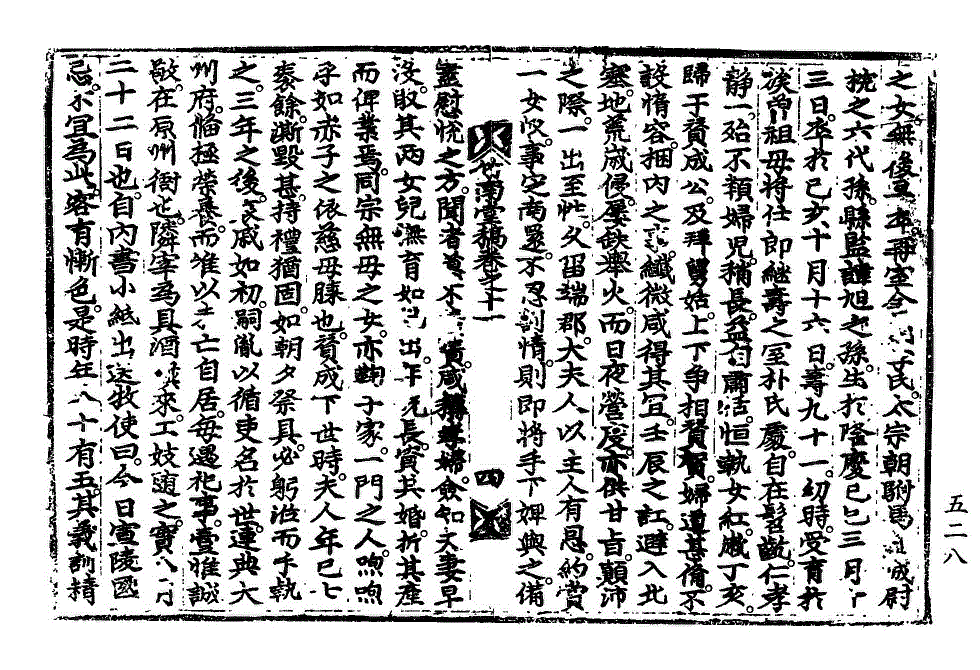 之女無後二年再室令 氏太宗朝駙馬 城尉
挩之六代孫縣監諱旭之孫生於隆慶己巳三月十
三日卒於己亥十月十六日壽九十一幼時受育於
族曾祖母將仕郎繼壽之室朴氏處自在髫齔仁孝
靜一殆不類婦兒稍長益 恒執女紅歲丁亥
歸于贊成公及拜舅姑上下爭相賛賀婦道甚脩不
設惰容捆內之 纖微咸得其宜壬辰之訌避入北
塞地荒歲侵屢缺舉火而日夜營度亦供甘旨顛沛
之際一出至忱久留端郡大夫人以主人有恩約賞
一女奴事定南還不忍割情則即將手下婢與之備
南堂稿卷之十一
四
盡慰悅之方聞者 咸稱孝婦僉知丈妻早
沒取其兩女兒撫育如己出年旣長資其婚折其産
而俾業焉同宗無母之女亦麴于家一門之人喣喣
孑如赤子之依慈母膝也贊成下世時夫人年已七
耋餘澌毀甚持禮猶固如朝夕祭具必躬涖而手執
之三年之後哀戚如初嗣胤以循吏名於世連典大
州府備極榮養而唯以未亡自居每遇祀事壹惟誠
敬在原州衙也隣宰爲具酒 來工妓随之實
二十二日也自內書小紙出送牧使曰今日寅陵國
忌不宜爲此客有慚色是時年八十有五其義訓精
五二八